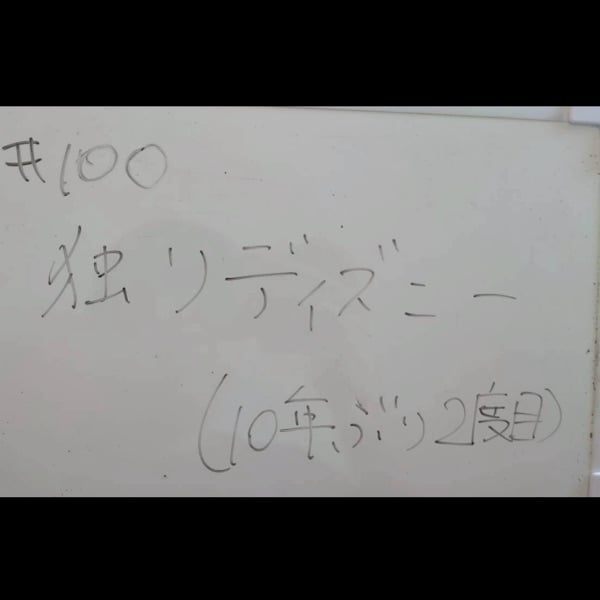 #100
独りディズニー
(10年ぶり2度目)